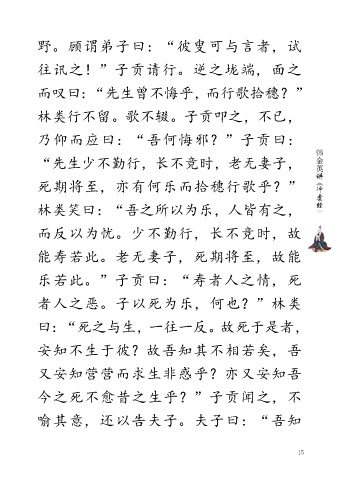 野。顾谓弟子曰：“彼叟可与言者，试
往讯之！”子贡请行。逆之垅端，面之
而叹曰：“先生曾不悔乎，而行歌拾穗？”
林类行不留。歌不辍。子贡叩之，不已，
乃仰而应曰：“吾何悔邪？”子贡曰：
“先生少不勤行，长不竞时，老无妻子，
死期将至，亦有何乐而拾穗行歌乎？”
林类笑曰：“吾之所以为乐，人皆有之，
而反以为忧。少不勤行，长不竞时，故
能寿若此。老无妻子，死期将至，故能
乐若此。”子贡曰：“寿者人之情，死
者人之恶。子以死为乐，何也？”林类
曰：“死之与生，一往一反。故死于是者，
安知不生于彼？故吾知其不相若矣，吾
又安知营营而求生非惑乎？亦又安知吾
今之死不愈昔之生乎？”子贡闻之，不
喻其意，还以告夫子。夫子曰：“吾知
韩金英讲《冲虚经》
15